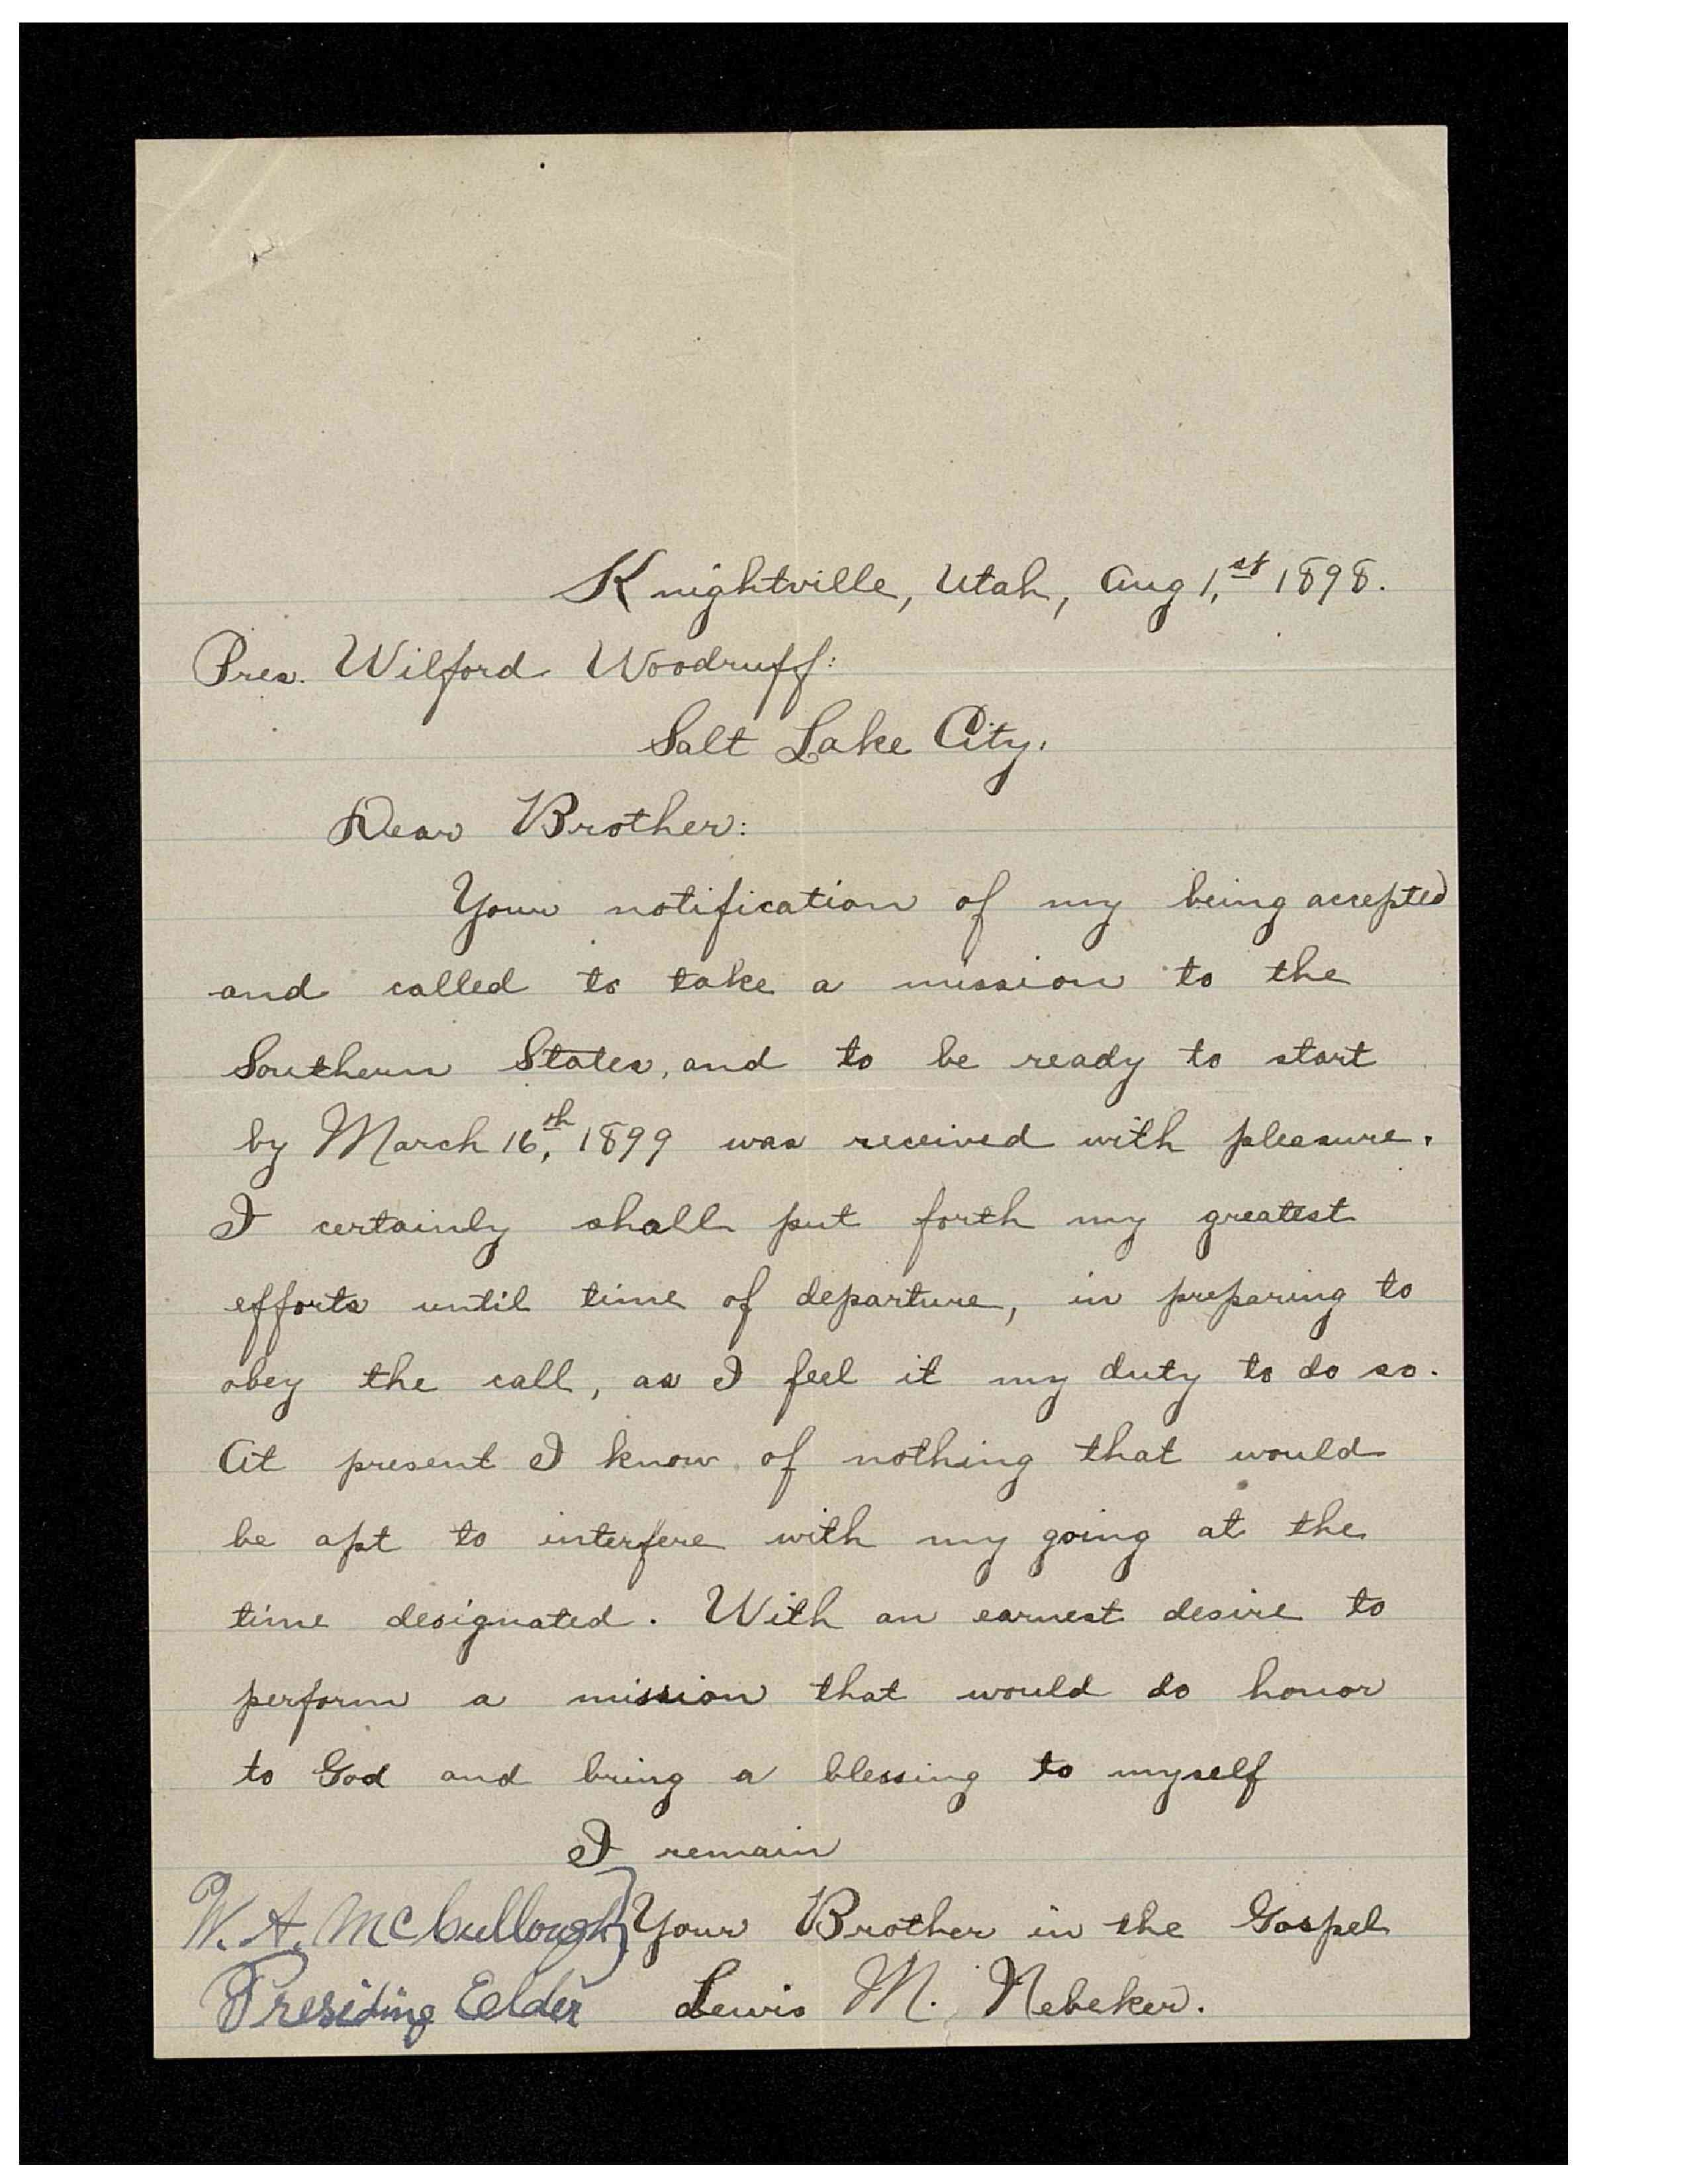 Knightville, Utah, Aug 1,st 1898.
Pres. Wilford Woodruff:
Salt Lake City.
Dear Brother:
Your notification of my being accepted
and called to take a mission to the
Southern States, and to be ready to start
by March 16,th 1899 was received with pleasure.
I certainly shall put forth my greatest
efforts until time of departure, in preparing to
obey the call, as I feel it my duty to do so.
At present I know of nothing that would
be apt to interfere with my going at the
time designated. With an earnest desire to
perform a mission that would do honor
to God and bring a blessing to myself
I remain
W. A. McCullough } Your Brother in the Gospel
Presiding Eelder Lewis M. Nebeker.